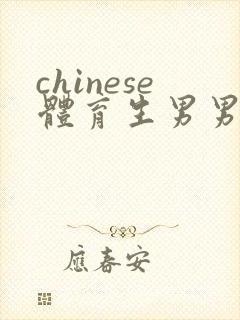 chinese
體育生男男
應春安